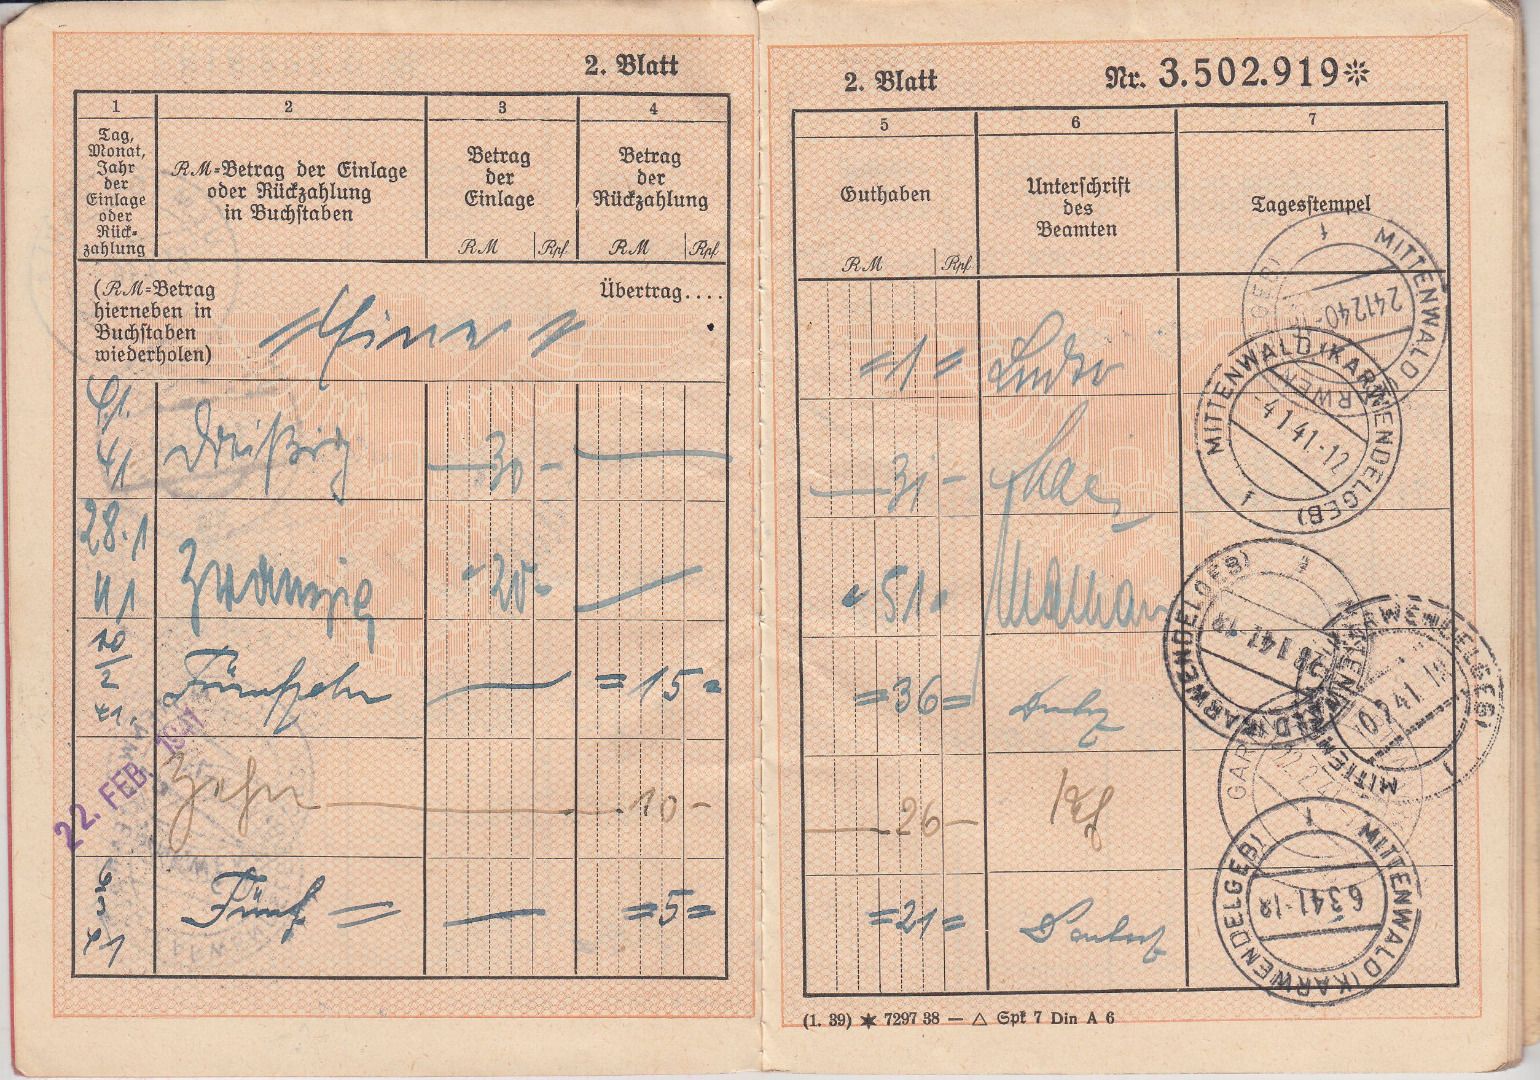 2. Blatt
1
2
3
4
Tag,
Monat,
Jahr
der
Einlage
oder
Rück-
zahlung
RM-Betrag der Einlage
oder Rückzahlung
in Buchstaben
Betrag
der
Einlage
RM Rpf
Betrag
der
Rückzahlung
RM Rpf
(RM-Betrag
hierneben in
Buchstaben
wiederholen)
Übertrag....
4.1.
41
Dreißig
— 30 — —
28.1
41
Zwanzig
- 20 - —
10
2
41.
Fünfzehn
— = 15 =
22. FEB. 1941
Zehn — 10 —
6
3
41
Fünf = — = 5 =
2. Blatt
Nr. 3.502.919
5
6
7
Guthaben
RM Rpf
Unterschrift
des
Beamten
Tagesstempel
= 1 =
MITTENWALD
241240-
— 31 —
MITTENWALD (KARWENDELGEB)
-4.1.41.-12
1
" 51 "
(KARWENDELGEB)
28.1.41.12
= 36 =
MITTENWALD KARWENDELGEB)
10.2.41.12
1
— 26 —
GAR
= 21 =
MITTENWALD (KARWENDELGEB)
6.3.41.-12
1
(1. 39) ✶ 7297 38 — △ Spk 7 Din A 6